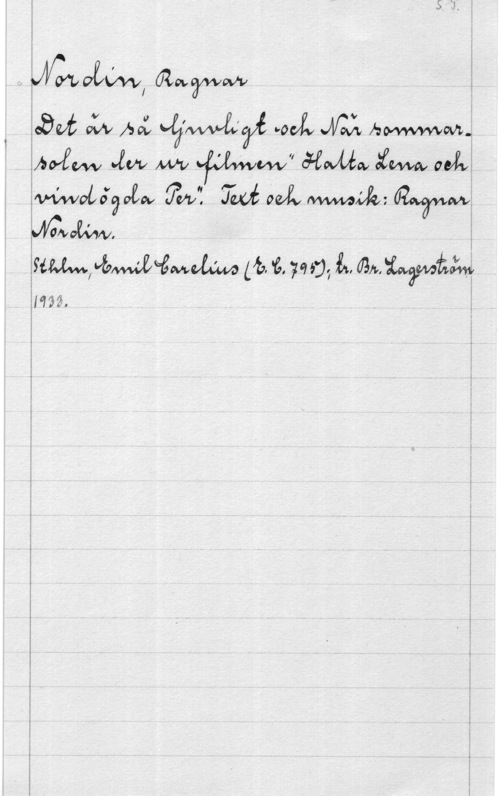 S. J.
Nordin, Ragnar
Det är så ljuvligt och När sommar-
solen ler ur filmen "Halta Lena och
vindögda Per". Text och musik: Ragnar
Nordin.
Sthlm, Emil Carelius (E. C. 795); tr. Br. Lagerström
1933.